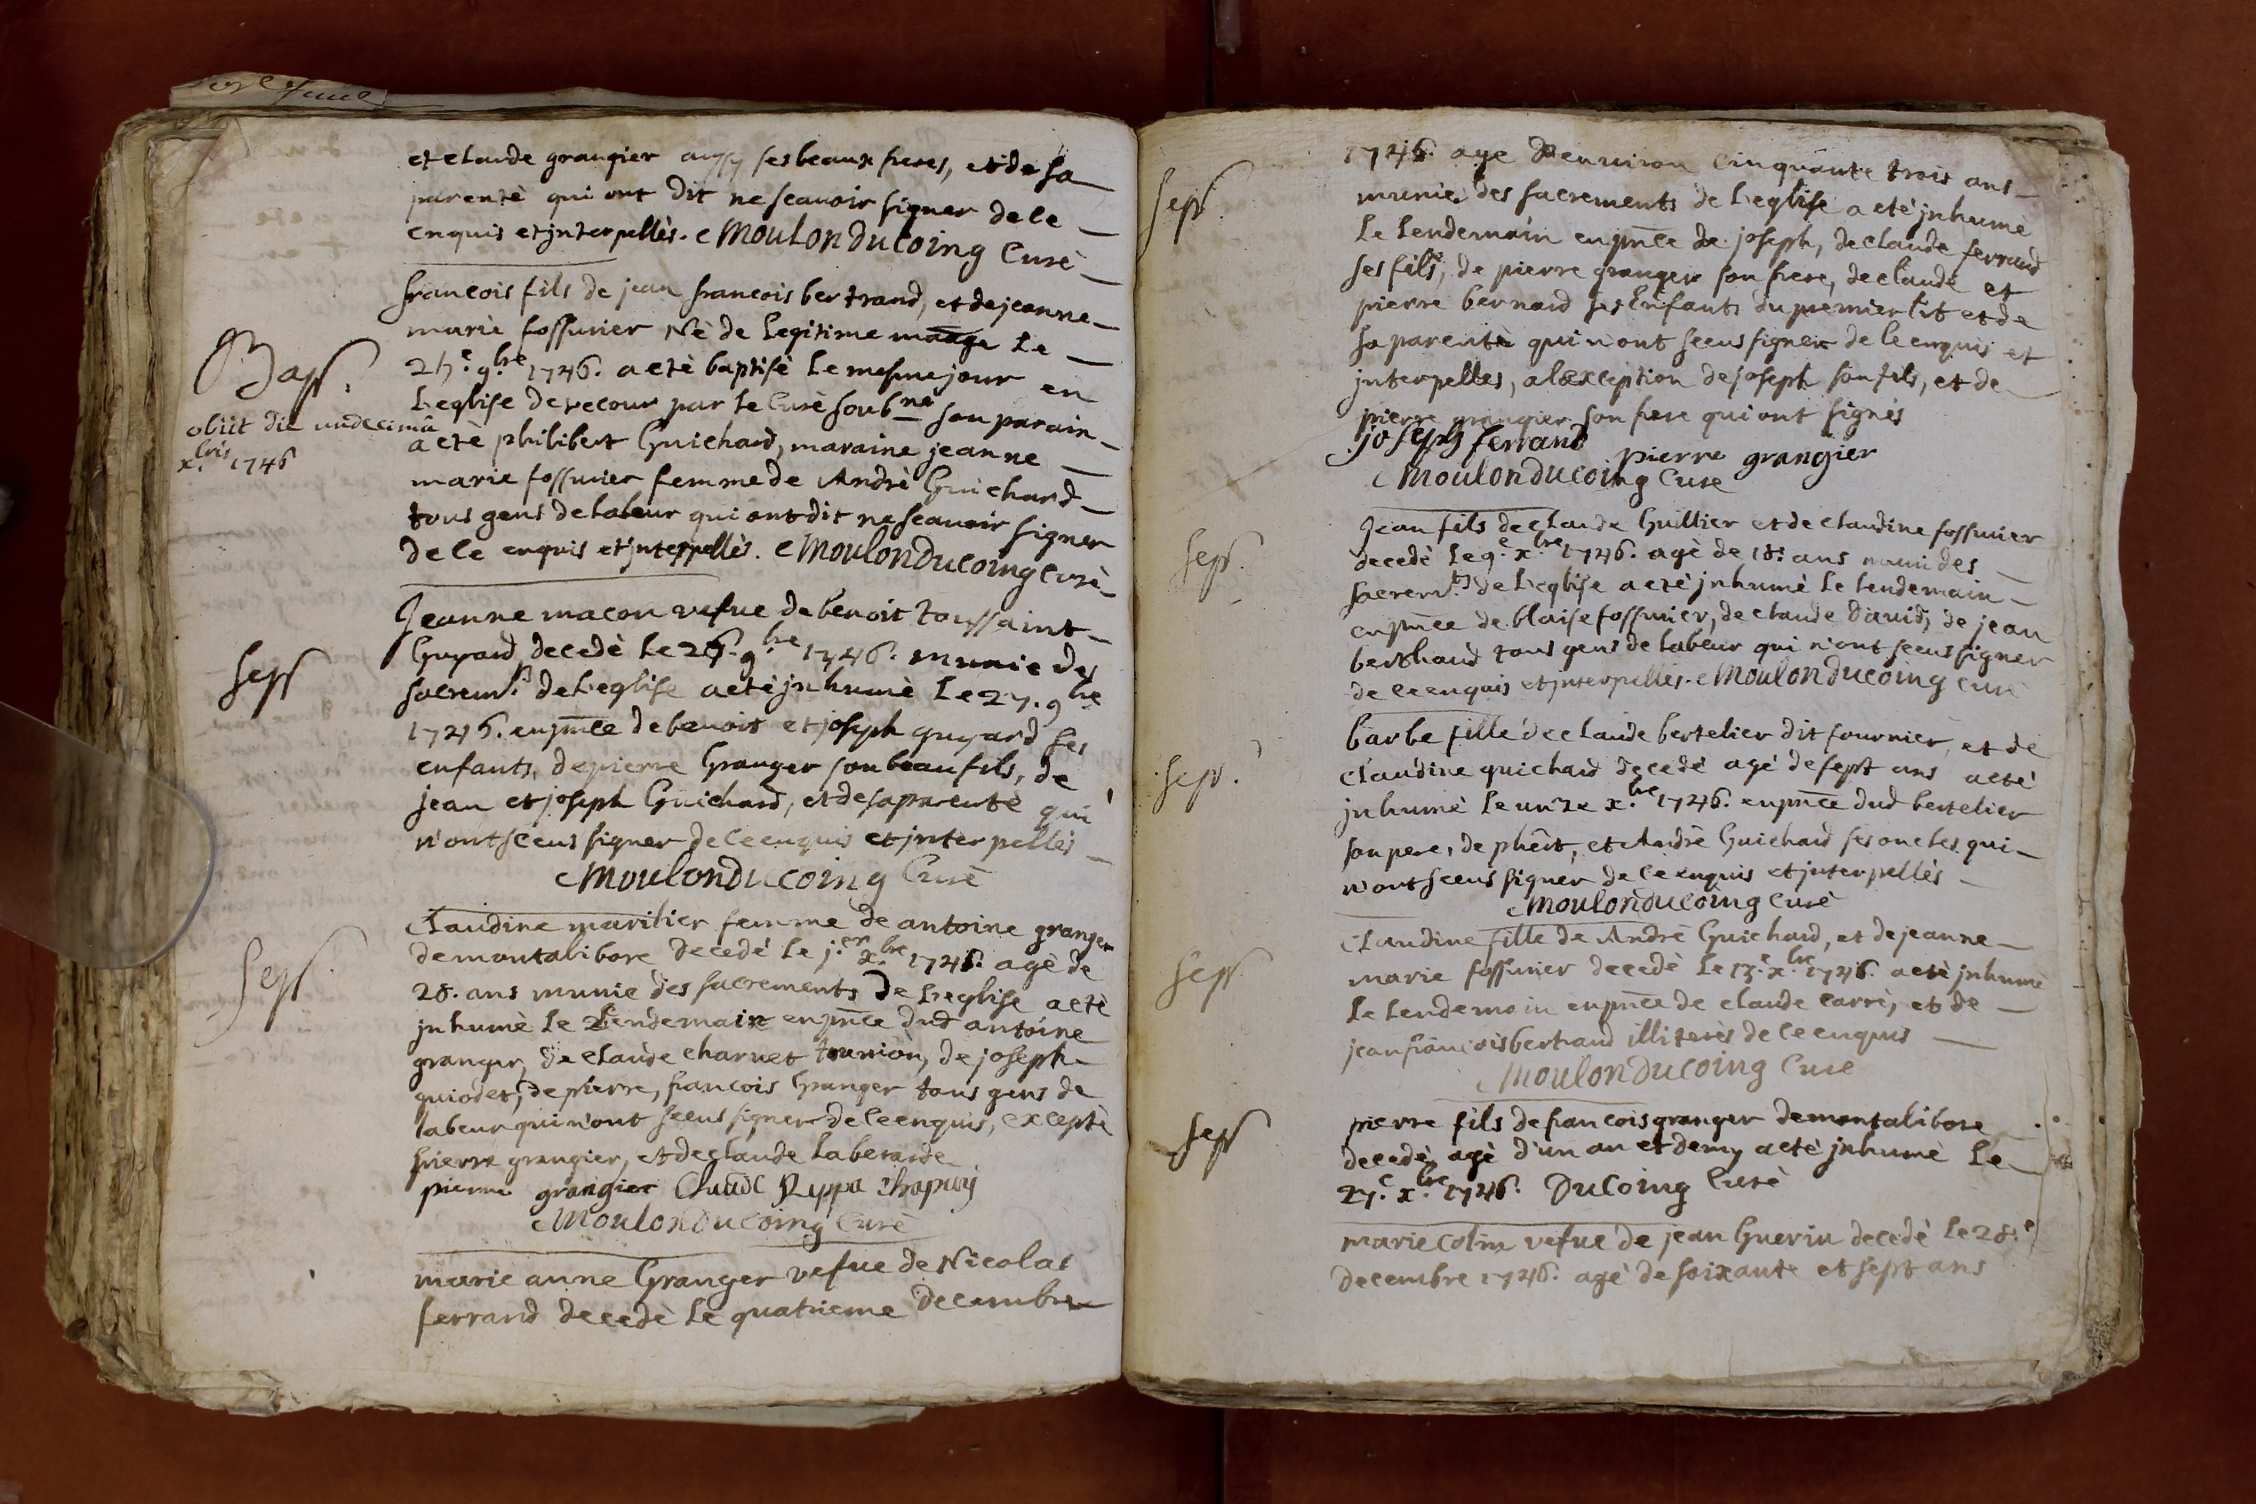 et claude grangier aussy ses beaux freres, et de sa
parentè qui ont dit ne scavoir signer de ce
enquis et jnterpellès. Moulon Ducoing Curè
francois fils de jean francois bertrand, et de jeanne
marie fossurier Nè de legitime maage le
Bap.
9.bre 1746. a etè baptisè le mesme jour en
l'eglise de recour par le Curè soubnè son parain
obiit die undecimâ
x.bris 1746
a etè philibert Guichard, maraine jeanne
marie fossurier femme de Andrè Guichard
tous gens de labeur qui ont dit ne scavoir signer
de ce enquis et jnterpellès. Moulon Ducoing Curè
Jeanne macon vefue de benoit toussaint
Guyard decedè le 26. 9.bre 1746. munie des
Sep
sacremts de l'eglise a etè jnhumè le 27. 9bre
1746. en pnce de benoit et joseph guyard ses
enfants, de pierre Granger son beau fils, de
jean et joseph Guichard, et de sa parentè qui
n'ont sceus signer de ce enquis et jnterpellès
Moulon Ducoing Curè
Claudine marilier femme de antoine granger
de montalibore decedè le j.er x.bre 1746. agè de
Sep.
28. ans munie des sacrements de l'eglise a etè
jnhumè le lendemain en pnce dud antoine
granger, de claude charvet tournion, de joseph
guiodet, de pierre, francois Granger tous gens de
labeur qui n'ont sceus signer de ce enquis, exceptè
pierre grangier, et de claude laberarde
pierre grangier Claude Chapuy
Moulon Ducoing Curè
marie anne Granger vefue de Nicolas
ferrand decedè le quatrieme decembre
1746. age D'enuiron cinquante trois ans
Sep.
munie des sacrements de l'eglise a etè jnhumè
le lendemain en pnce de joseph, de claude ferrand
ses fils, de pierre granger son frere, de claude et
pierre bernard ses Enfants du premier lit et de
sa parentè qui n'ont sceus signer de ce enquis et
jnterpelles, a lexception de joseph son fils, et de
pierre grangier son frere qui ont signès
joseph ferrand
pierre grangier
Moulon Ducoing Cure
Jean fils de claude Guillier et de claudine fossurier
Sep.
decedè le 9.e x.bre 1746. agè de 18. ans muni des
sacremts de l'eglise a etè jnhumè le lendemain
en pnce de blaise fossurier, de claude David, de jean
berthaud tous gens de labeur qui n'ont sceus signer
de ce enquis et jnterpellès. Moulon Ducoing Curè
barbe fille de claude bertelier dit fournier, et de
Sep.
Claudine guichard decedè agè de sept ans a etè
jnhumè le unze x.bre 1746. en pnce dud bertelier
son pere, de phêrt, et Andrè Guichard ses oncles qui
n'ont sceus signer de ce enquis et jnterpellès
Moulon Ducoing Curè
Claudine fille de Andrè Guichard, et de jeanne
Sep.
marie fossurier decedè le 13.e x.bre 1746. a etè jnhumè
le lendemain en pnce de claude carrè, et de
jean francois bertrand illiterès de ce enquis
Moulon Ducoing Cure
pierre fils de francois granger de montalibore
Sep
decedè agè d'un an et demy a etè jnhumè le
27.e x.bre 1746. Ducoing Curè
marie Colin vefue de jean Guerin decedè le 28.e
decembre 1746. agè de soixante et sept ans